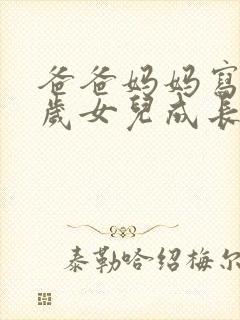 爸爸妈妈寫
歲女兒成長
泰勒哈绍梅尔